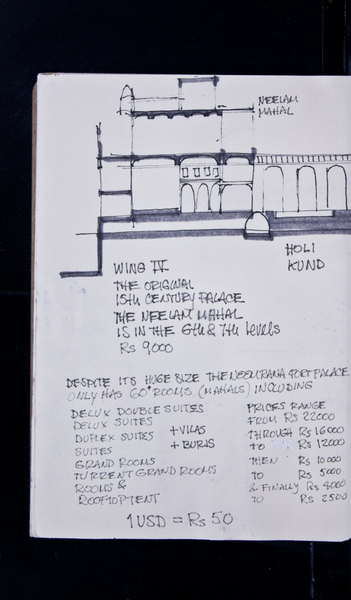 NEELAM
MAHAL
HOLI
KUND
WING IV
THE ORIGINAL
15th CENTURY PALACE
THE NEELAM MAHAL
IS IN THE 6th & 7th levels
Rs 9000
DESPITE ITS HUGE SIZE THE NEEMRANA FORT PALACE
ONLY HAS 60+ ROOMS (MAHALS) INCLUDING
DELUX DOUBLE SUITES PRICES RANGE
DELUX SUITES +VILAS FROM Rs 22000
DUPLEX SUITES THROUGH Rs 16000
SUITES + BURJS TO Rs 12000
GRAND ROOMS THEN Rs 10000
TURRENT GRAND ROOMS TO Rs 5000
ROOMS & & FINALLY Rs 4000
ROOFTOP TENT TO Rs 2500
1 USD = Rs 50